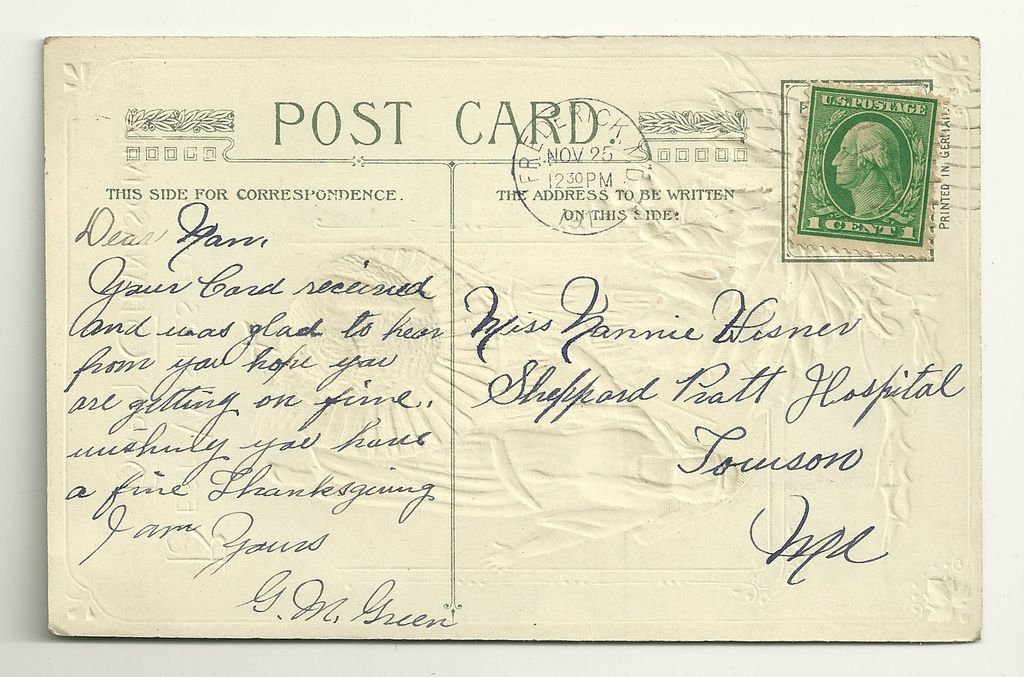 POST CARD
THIS SIDE FOR CORRESPONDENCE.
THE ADDRESS TO BE WRITTEN
ON THIS SIDE.
FREDERICK MD
NOV 25
12 30 PM
U.S. POSTAGE
1 CENT 1
PRINTED IN GERMANY
Dear Nan,
Your Card received
and was glad to hear
from you hope you
are getting on fine.
wishing you have
a fine Thanksgiving
I am Yours
G. M. Green
Miss Nannie Wisner
Sheppard Pratt Hospital
Towson
Md